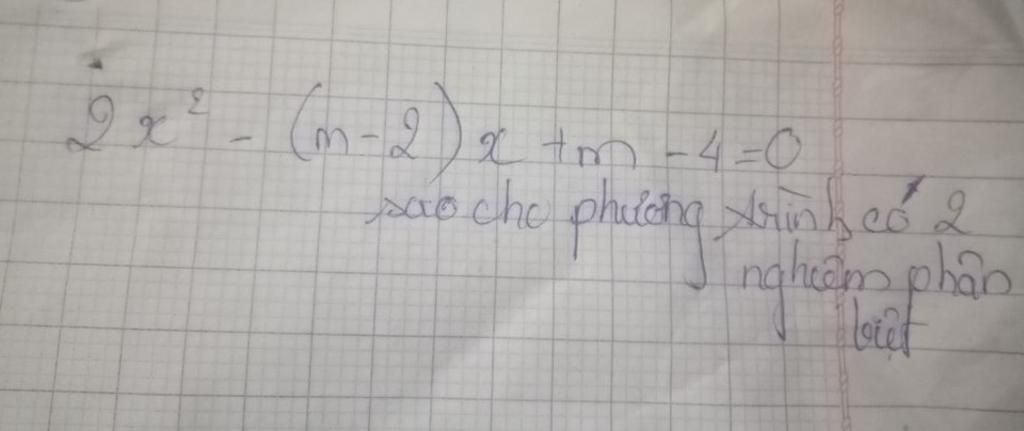 2x² - (m - 2)x + m - 4 = 0
sao cho phương trình có 2
nghiệm phân
biệt